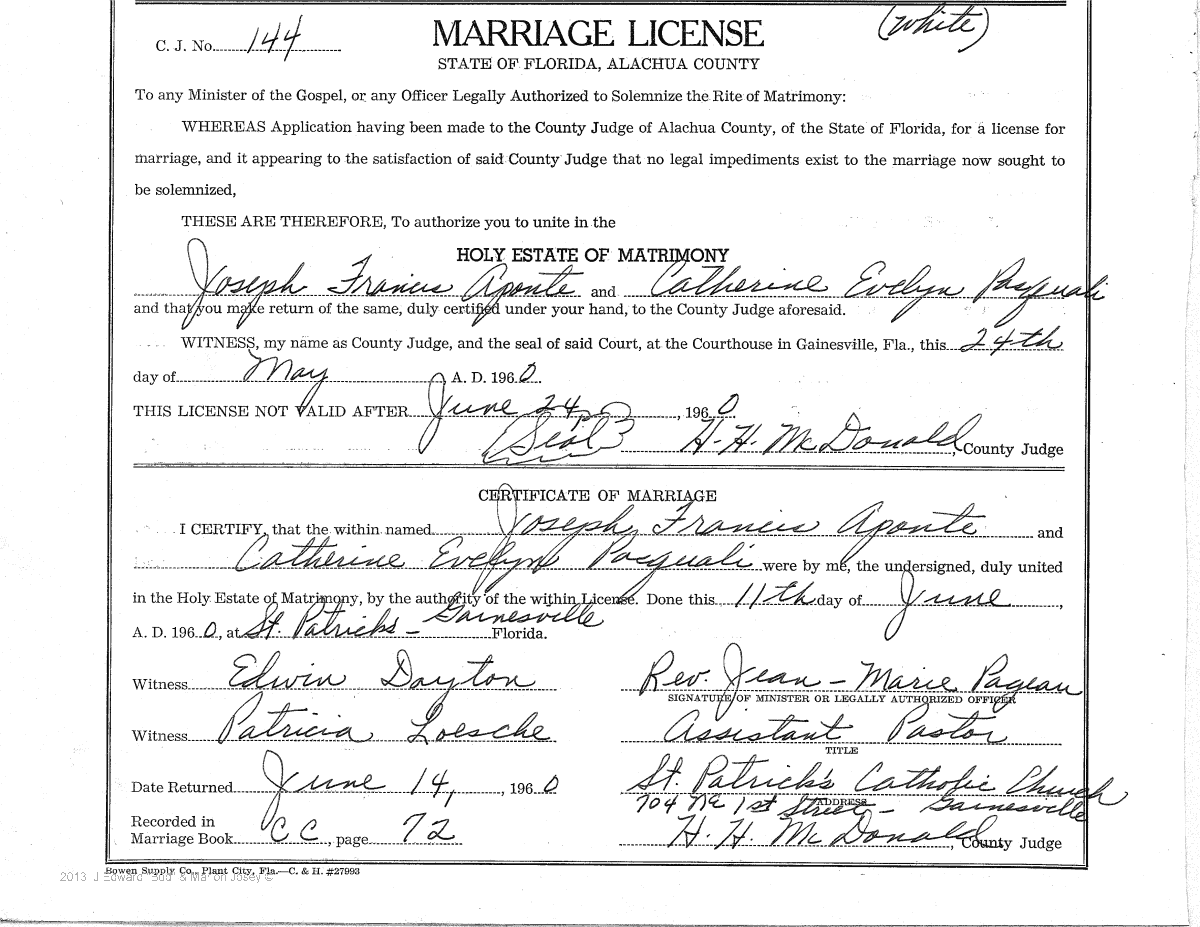 C. J. No. 144
MARRIAGE LICENSE
(White)
STATE OF FLORIDA, ALACHUA COUNTY
To any Minister of the Gospel, or any Officer Legally Authorized to Solemnize the Rite of Matrimony:
WHEREAS Application having been made to the County Judge of Alachua County, of the State of Florida, for a license for
marriage, and it appearing to the satisfaction of said County Judge that no legal impediments exist to the marriage now sought to
be solemnized,
THESE ARE THEREFORE, To authorize you to unite in the
HOLY ESTATE OF MATRIMONY
Joseph Francis Aponte and Catherine Evelyn Pasquali
and that you make return of the same, duly certified under your hand, to the County Judge aforesaid.
WITNESS, my name as County Judge, and the seal of said Court, at the Courthouse in Gainesville, Fla., this 24th
day of May A. D. 1960
THIS LICENSE NOT VALID AFTER June 24, 1960
(Seal) H. H. McDonald, County Judge
CERTIFICATE OF MARRIAGE
I CERTIFY, that the within named Joseph Francis Aponte and
Catherine Evelyn Pasquali were by me, the undersigned, duly united
in the Holy Estate of Matrimony, by the authority of the within License. Done this 11th day of June,
A. D. 1960, at St. Patricks - Gainesville Florida.
Witness Edwin Dayton
Rev. Jean-Marie Pageau
SIGNATURE OF MINISTER OR LEGALLY AUTHORIZED OFFICER
Witness Patricia Loesche
Assistant Pastor
TITLE
Date Returned June 14, 1960
St. Patrick's Catholic Church
ADDRESS
704 NE 1st Street - Gainesville
Recorded in
Marriage Book CC, page 72
H. H. McDonald, County Judge
Bowen Supply Co., Plant City, Fla.—C. & H. #27993
2013 J Edward "Bud" & Marion Josey ©